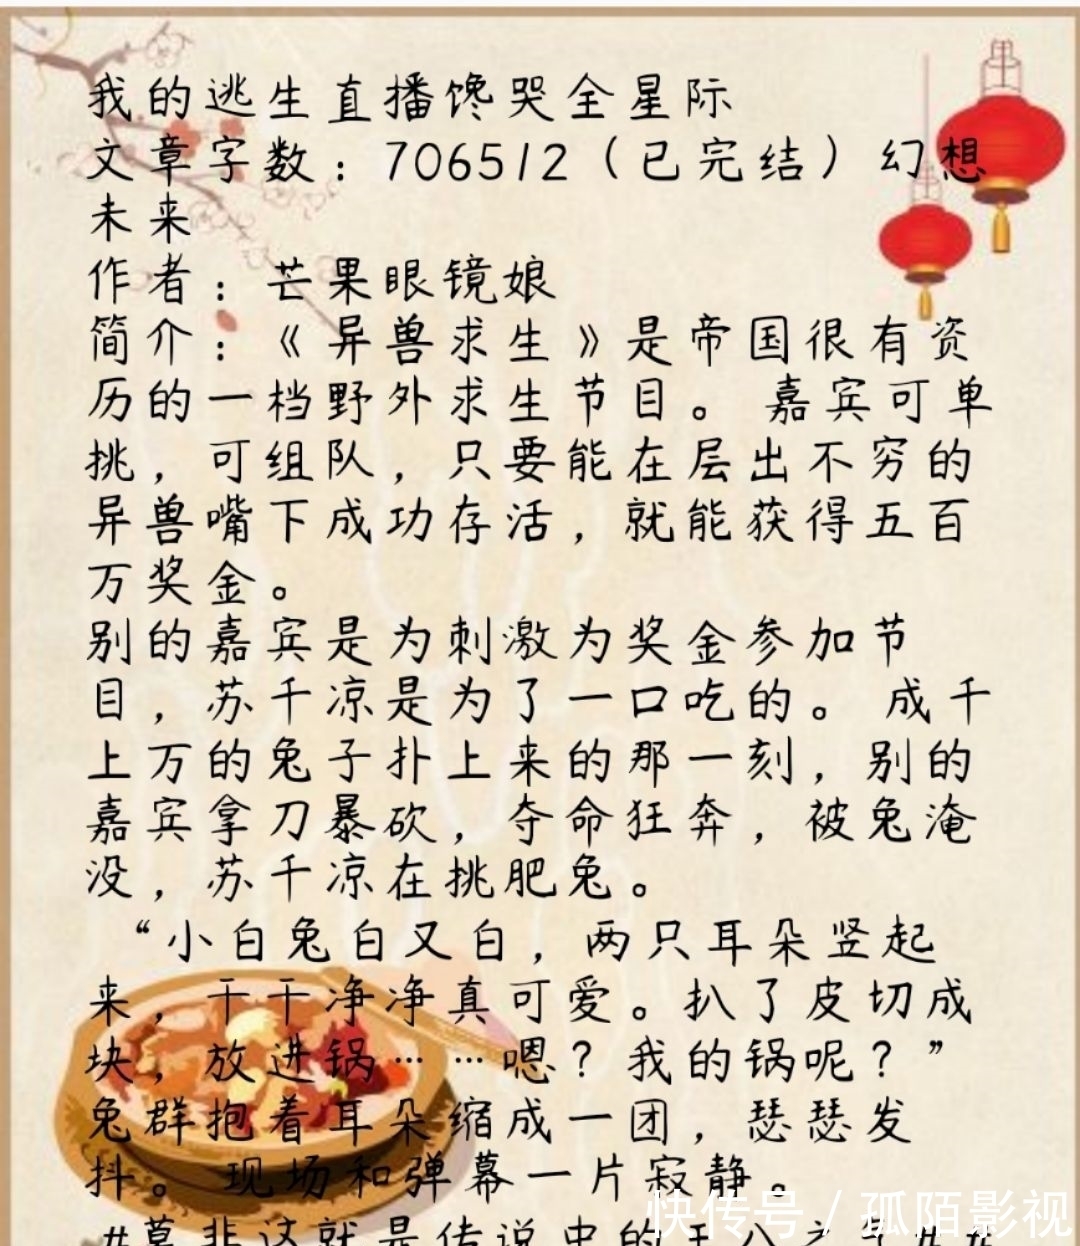 我的逃生直播馋哭全星际
文章字数：706512（已完结）幻想
未来
作者：芒果眼镜娘
简介：《异兽求生》是帝国很有资
历的一档野外求生节目。 嘉宾可单
挑，可组队，只要能在层出不穷的
异兽嘴下成功存活，就能获得五百
万奖金。
别的嘉宾是为刺激为奖金参加节
目，苏千凉是为了一口吃的。 成千
上万的兔子扑上来的那一刻，别的
嘉宾拿刀暴砍，夺命狂奔，被兔淹
没，苏千凉在挑肥兔。
“小白兔白又白，两只耳朵竖起
来，干干净净真可爱。扒了皮切成
块，放进锅……嗯？我的锅呢？”
兔群抱着耳朵缩成一团，瑟瑟发
抖。 现场和弹幕一片寂静。
#莫非这就是传说中的王八之气
快传号 / 孤陌影视